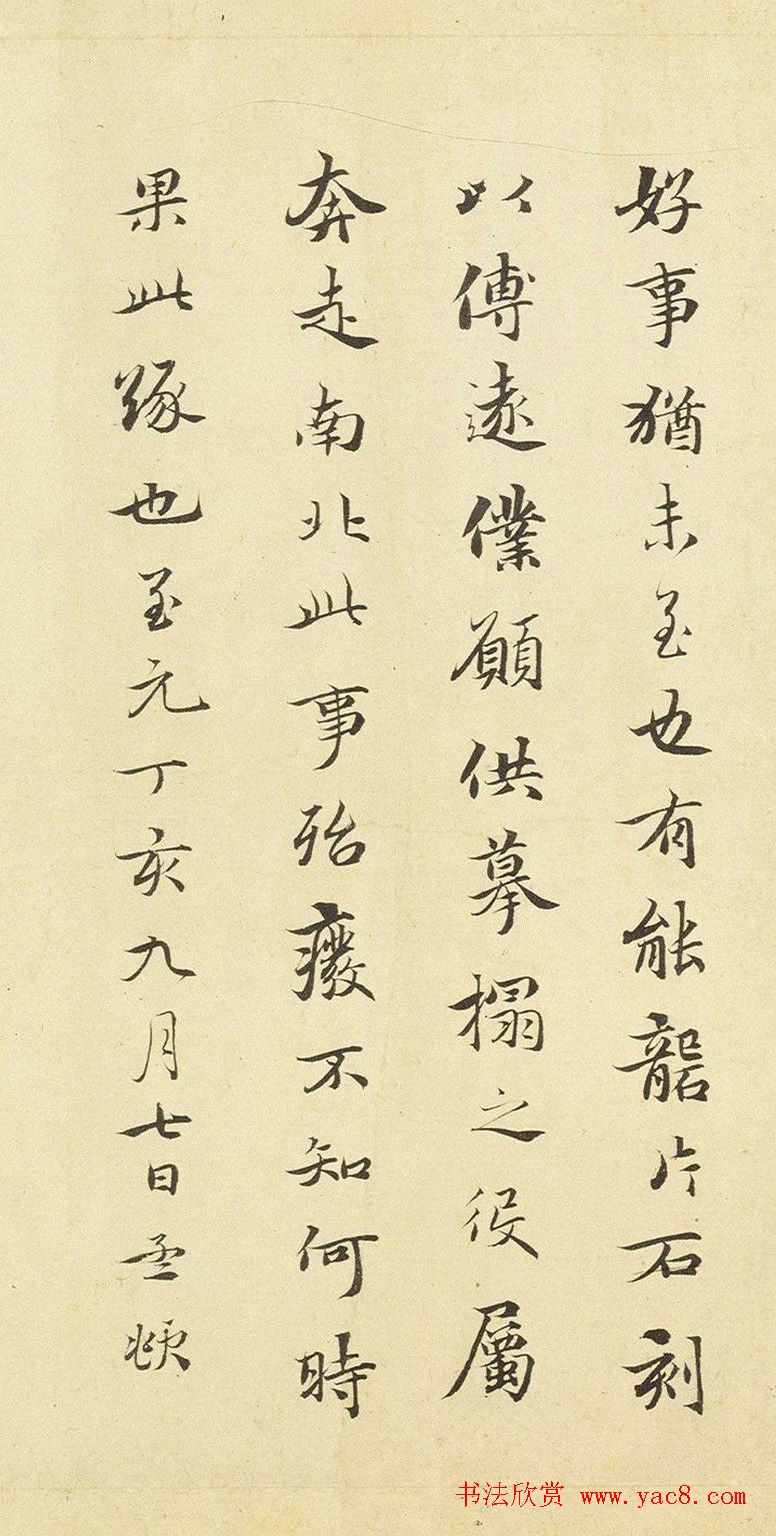 好事猶未至也有能礱片石刻
以傳遠僕願供摹搨之役屬
奔走南北此事殆廢不知何時
果此緣也至元丁亥九月七日孟頫
书法欣赏 www.yac8.com